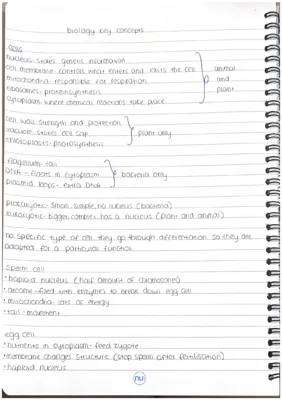 biology key concepts
cells
nucleus: stores genetic information
cell membrane: controls what enters and exits the cell
mitochondria: responsible for respiration
ribosomes: protein synthesis
cytoplasm: where chemical reactions take place
animal and plant
cell wall: strength and protection
vacuole: stores cell sap
chloroplasts: photosynthesis
plant only
flagellum: tail
DNA: floats in cytoplasm
plasmid loops: extra DNA
bacteria only
prokaryotic: small, simple, no nucleus (bacteria)
eukaryotic: bigger, complex, has a nucleus (plant and animal)
no specific type of cell they go through differentiation so they are
adapted for a particular function
sperm cell
• haploid nucleus (half amount of chromosomes)
• acrosome: filled with enzymes to break down egg cell
• mitochondria: lots of energy
• tail: movement
egg cell
• nutrients in cytoplasm: feed zygote
• membrane changes structure (stop sperm after fertilisation)
• haploid nucleus
nu